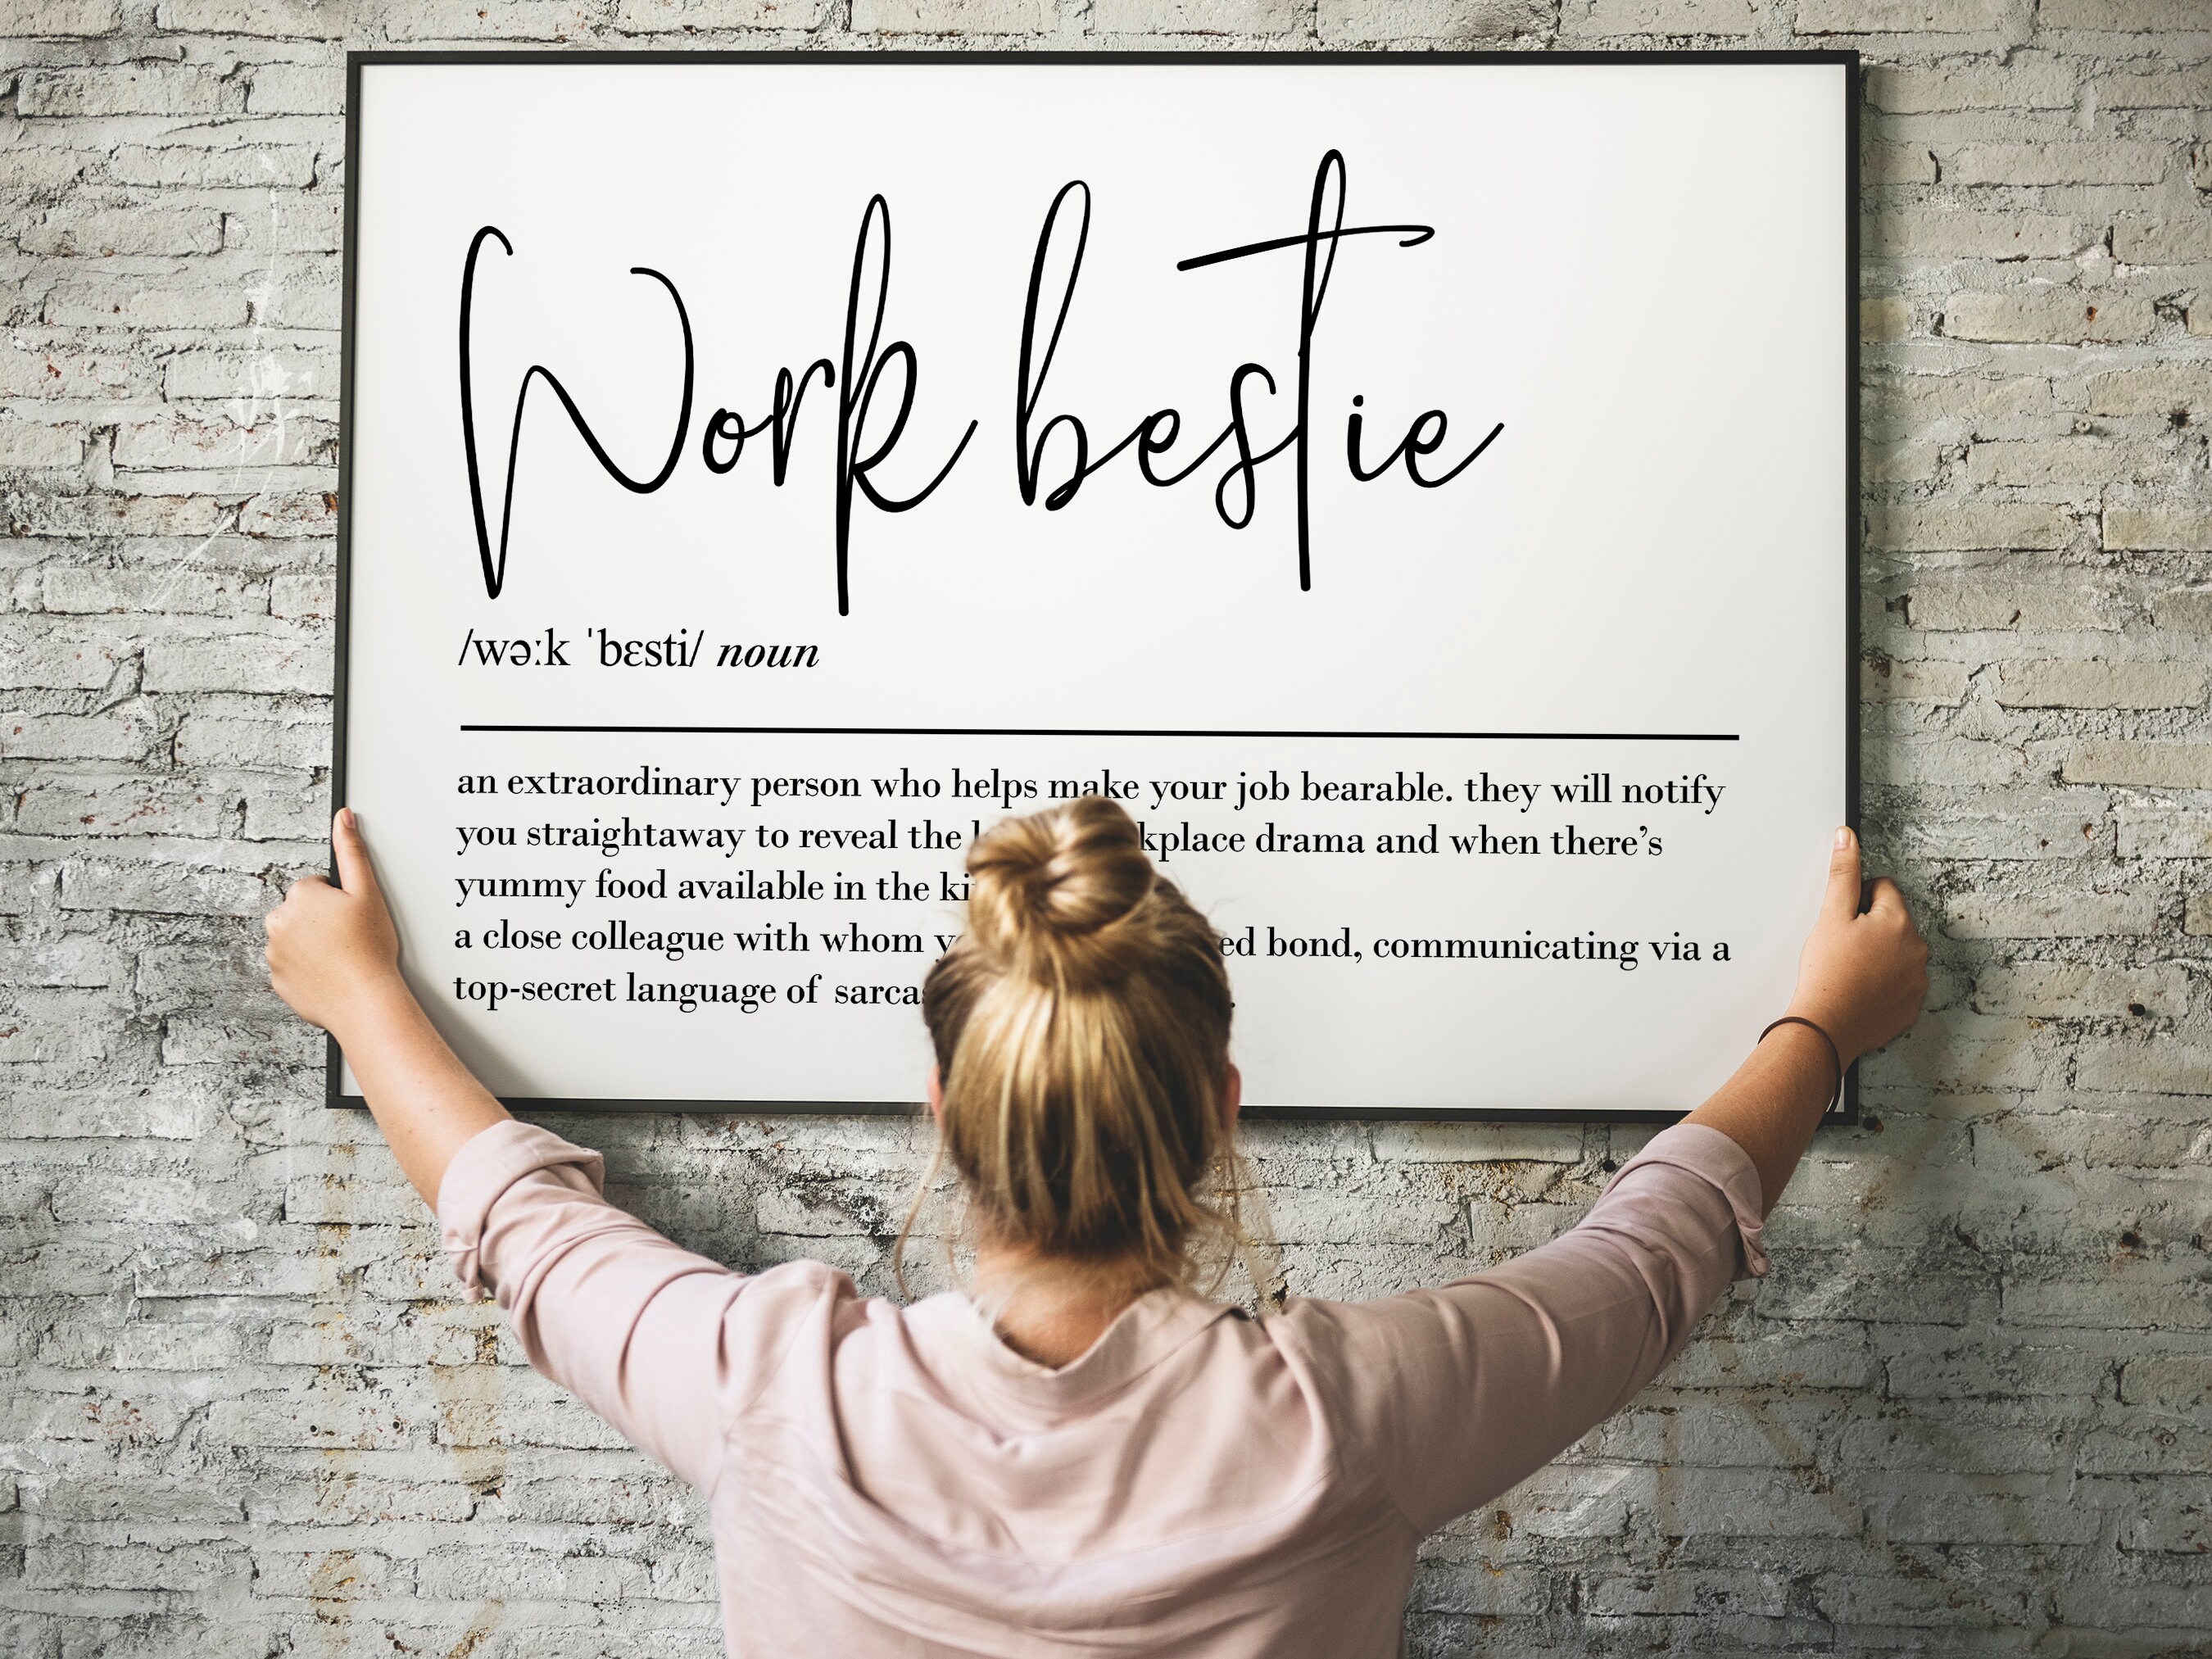 Work bestie
/wə:k ˈbɛsti/ noun
an extraordinary person who helps make your job bearable. they will notify
you straightaway to reveal the kplace drama and when there's
yummy food available in the
a close colleague with whom bond, communicating via a
top-secret language of